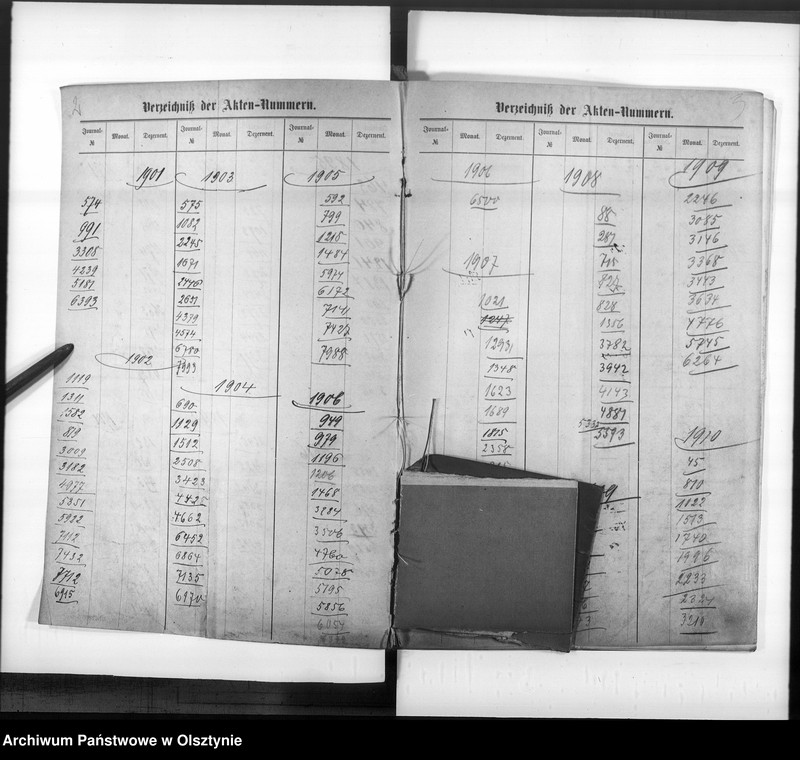 2
Verzeichniß der Akten-Nummern.
Journal-
№
Monat.
Dezernent.
Journal-
№
Monat.
Dezernent.
Journal-
№
Monat.
Dezernent.
1901
574
991
3308
4239
5181
6393
1902
1119
1311
1582
819
3009
3182
4977
5351
5982
7112
7432
7712
6915
1903
575
1082
2245
1671
2446
2631
4379
4574
6780
7993
1904
690
1129
1512
2508
3423
4425
4662
6452
6864
7135
6970
1905
592
799
1215
1484
5974
6172
7141
7427
7988
1906
949
979
1196
1206
1468
3284
3506
4760
5028
5195
5856
6054
Verzeichniß der Akten-Nummern.
Journal-
№
Monat.
Dezernent.
Journal-
№
Monat.
Dezernent.
Journal-
№
Monat.
Dezernent.
1906
6500
1907
1021
1247
1293
1348
1623
1689
1815
2358
1908
88
287
715
827
828
1356
3782
3942
4143
4887
5335
5593
1909
2246
3085
3146
3368
3443
3634
4776
5745
6264
1910
45
810
1022
1513
1740
1996
2233
2324
3210
Archiwum Państwowe w Olsztynie